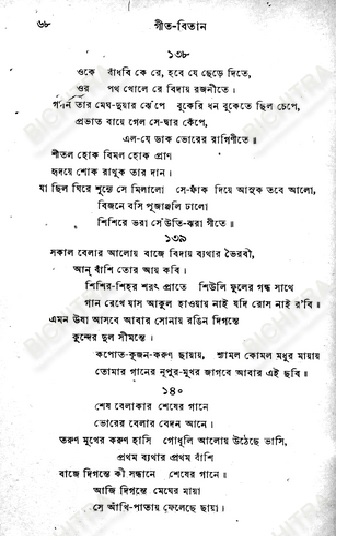 ৬৮ গীত-বিতান
১৩৮
ওকে বাঁধবি কে রে, হবে যে ছেড়ে দিতে,
ওর পথ খোলে রে বিদায় রজনীতে।
গগনে তার মেঘ-দুয়ার ঝেঁপে বুকেরি ধন বুকেতে ছিল চেপে,
প্রভাত বায়ে গেল সে-দ্বার কেঁপে,
এল-যে ডাক ভোরের রাগিণীতে॥
শীতল হোক বিমল হোক প্রাণ
হৃদয়ে শোক রাখুক তার দান।
যা ছিল ঘিরে শূন্যে সে মিলালো সে-ফাঁক দিয়ে আসুক তবে আলো,
বিজনে বসি পূজাঞ্জলি ঢালো
শিশিরে ভরা সেঁউতি-ঝরা গীতে॥
১৩৯
সকাল বেলার আলোয় বাজে বিদায় ব্যথার ভৈরবী,
আন্ বাঁশি তোর আয় কবি।
শিশির-শিহর শরৎ প্রাতে শিউলি ফুলের গন্ধ সাথে
গান রেখে যাস আকুল হাওয়ায় নাই যদি রোস নাই র'বি॥
এমন উষা আসবে আবার সোনায় রঙিন দিগন্তে
কুন্দের দুল সীমন্তে।
কপোত-কূজন-করুণ ছায়ায়, শ্যামল কোমল মধুর মায়ায়
তোমার গানের নূপুর-মুখর জাগবে আবার এই ছবি॥
১৪০
শেষ বেলাকার শেষের গানে
ভোরের বেলার বেদন আনে।
তরুণ মুখের করুণ হাসি গোধূলি আলোয় উঠেছে ভাসি,
প্রথম ব্যথার প্রথম বাঁশি
বাজে দিগন্তে কী সন্ধানে শেষের গানে॥
আজি দিগন্তে মেঘের মায়া
সে আঁখি-পাতায় ফেলেছে ছায়া।
BICHITRA